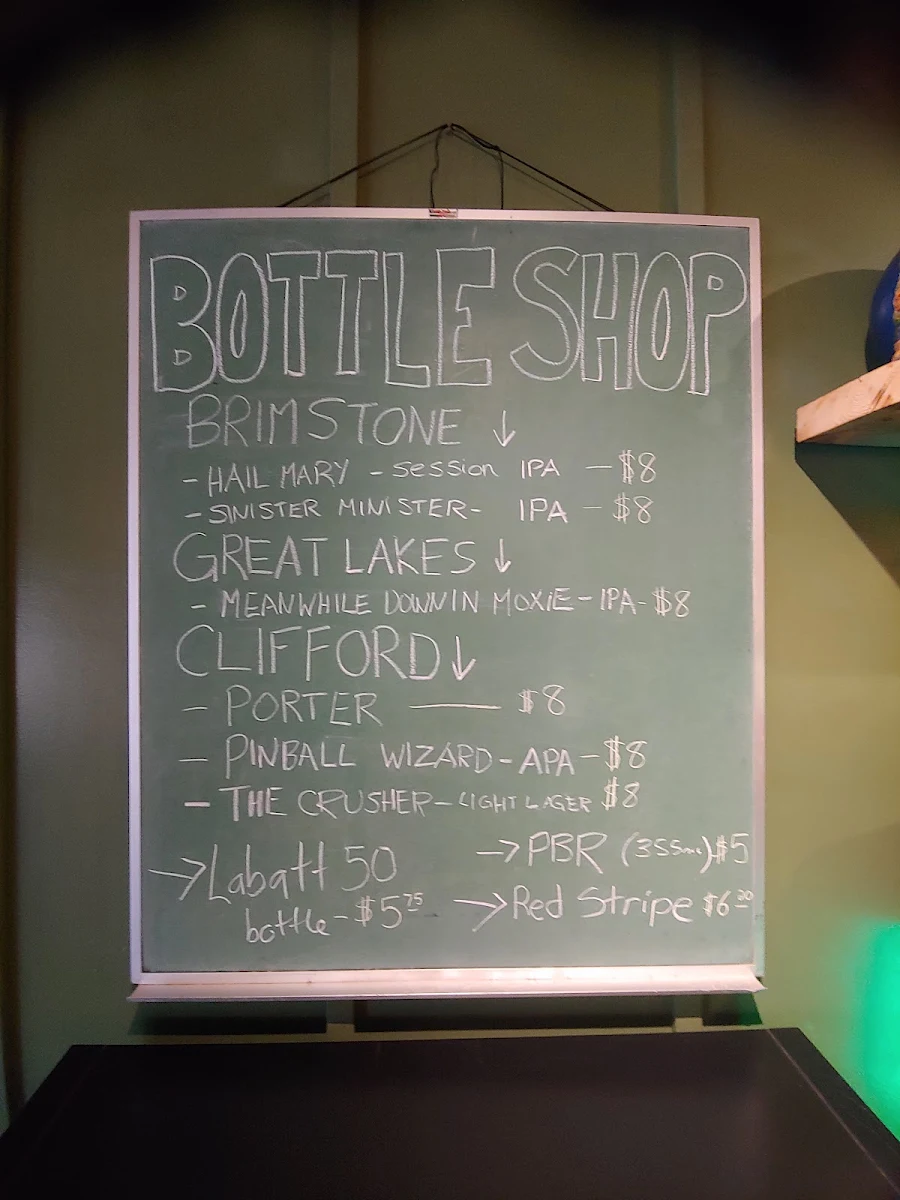 BOTTLE SHOP
BRIMSTONE ↓
- HAIL MARY - session IPA - $8
- SINISTER MINISTER - IPA - $8
GREAT LAKES ↓
- MEANWHILE DOWN IN MOXIE - IPA - $8
CLIFFORD ↓
- PORTER — $8
- PINBALL WIZARD - APA - $8
- THE CRUSHER - LIGHT LAGER $8
→ Labatt 50
bottle - $5.75
→ PBR (355mL) $5
→ Red Stripe $6.20